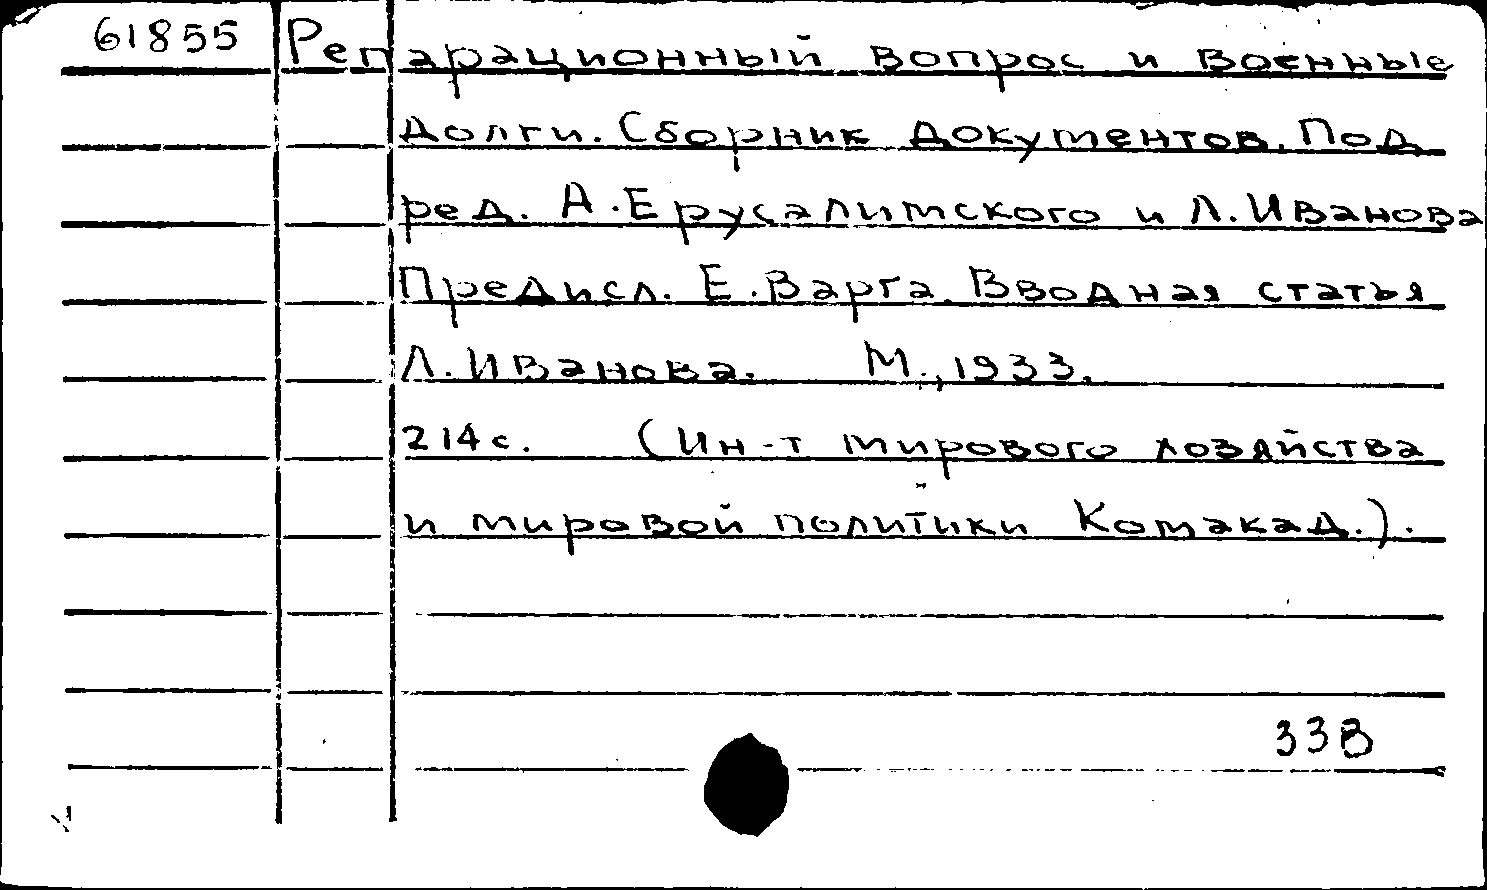 61855 Репарационный вопрос и военные
долги. Сборник документов. Под
ред. А.Ерусалимского и Л.Иванова
Предисл. Е.Варга. Вводная статья
Л.Иванова. М., 1933.
214с. (Ин-т мирового хозяйства
и мировой политики Комакад.).
33В